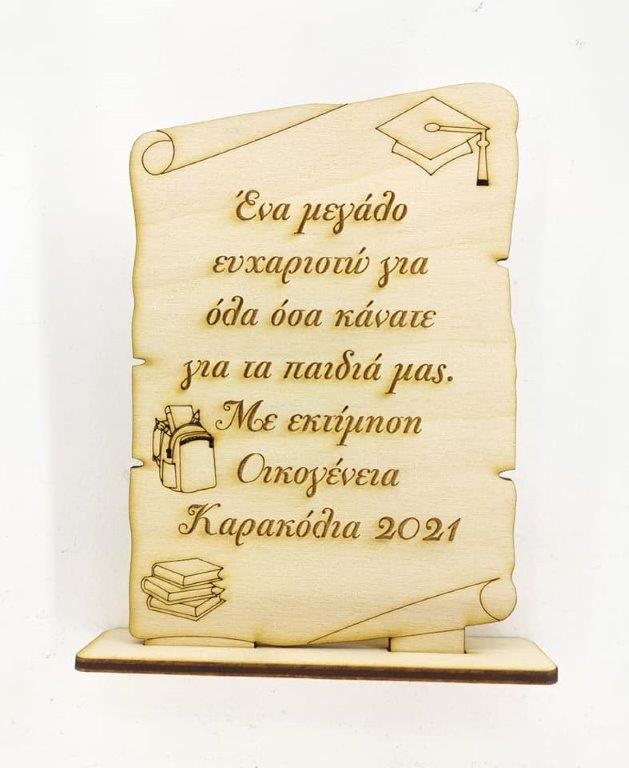 Ένα μεγάλο
ευχαριστώ για
όλα όσα κάνατε
για τα παιδιά μας.
Με εκτίμηση
Οικογένεια
Καρακόλια 2021